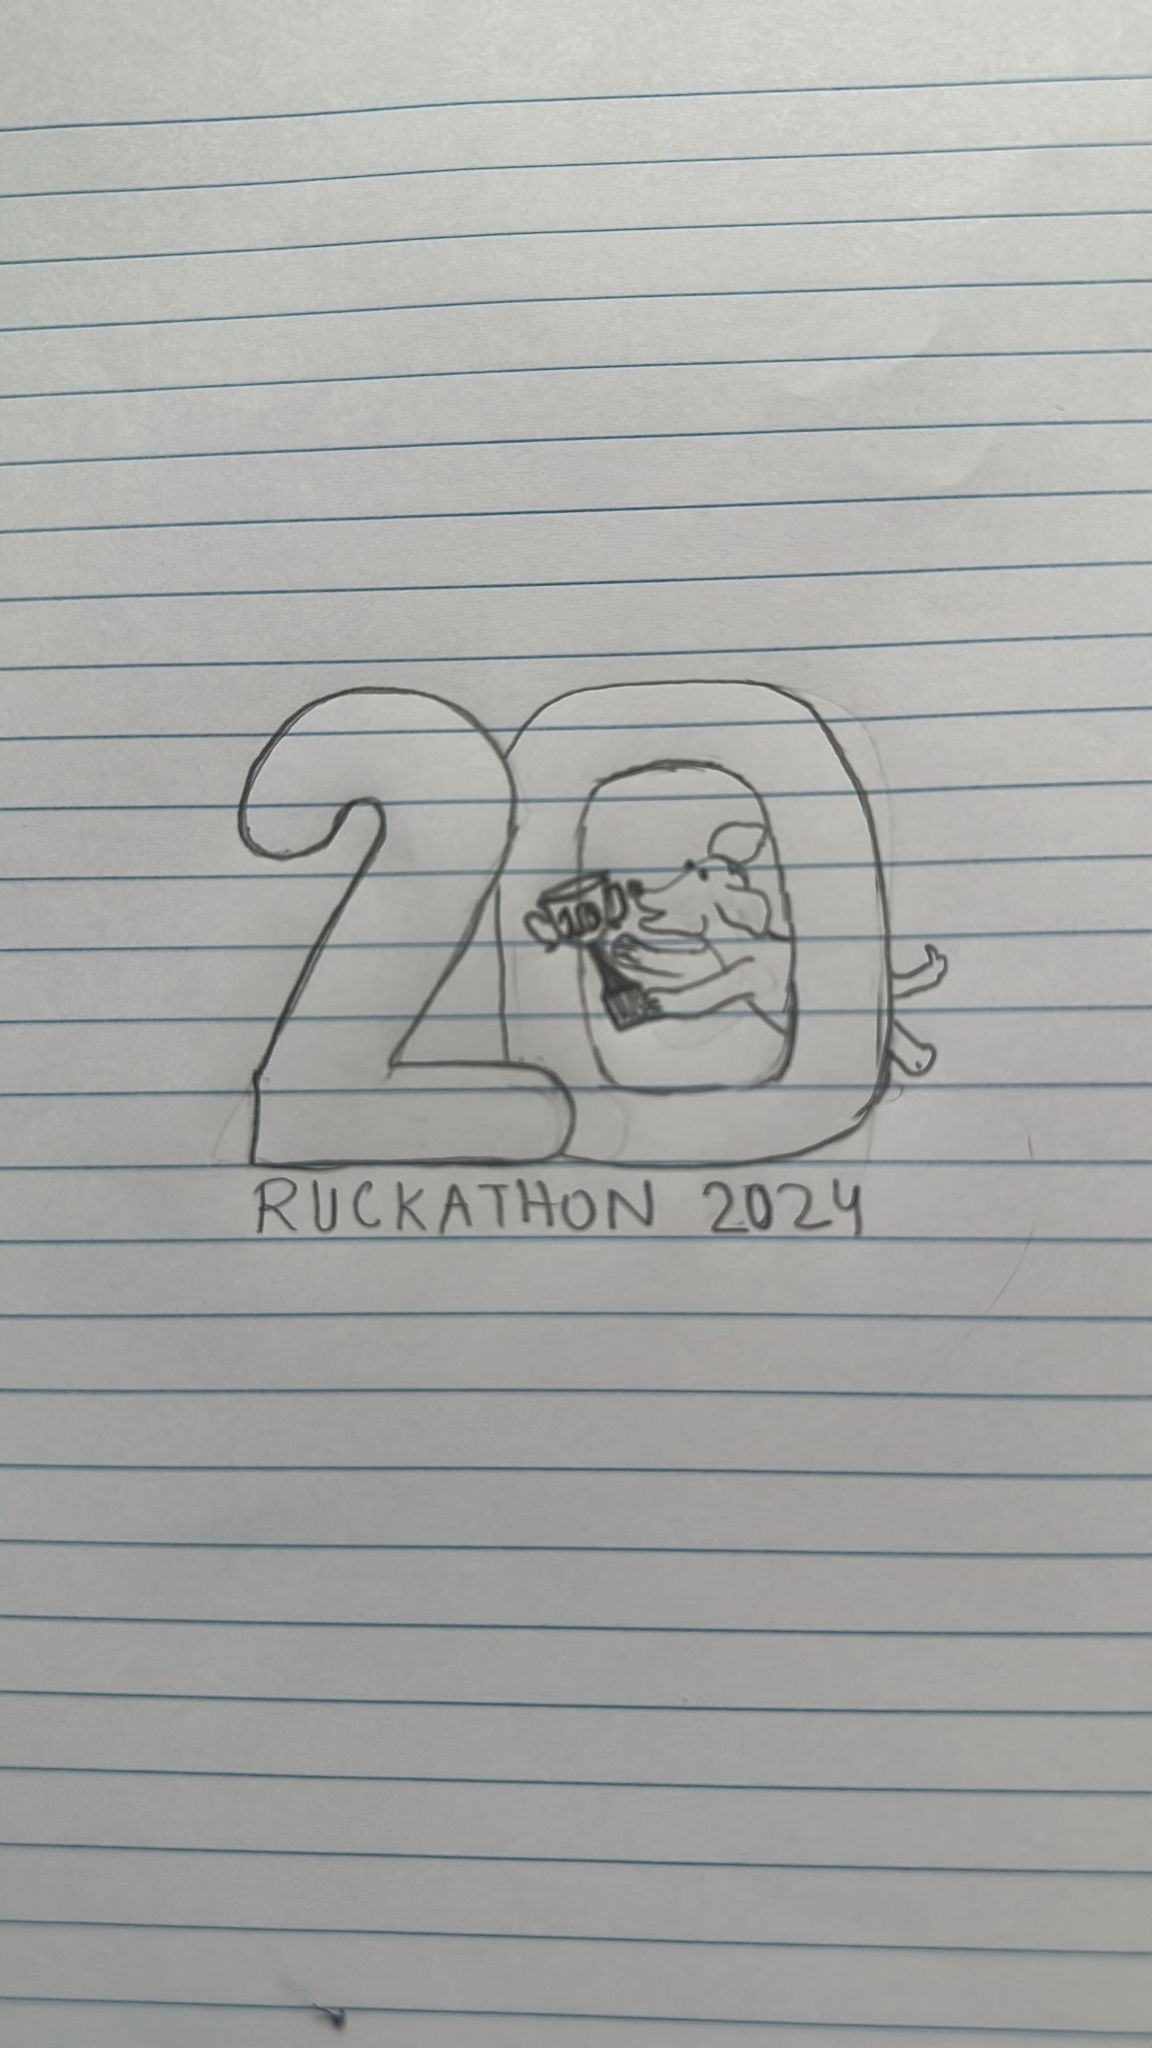 20
RUCKATHON 2024